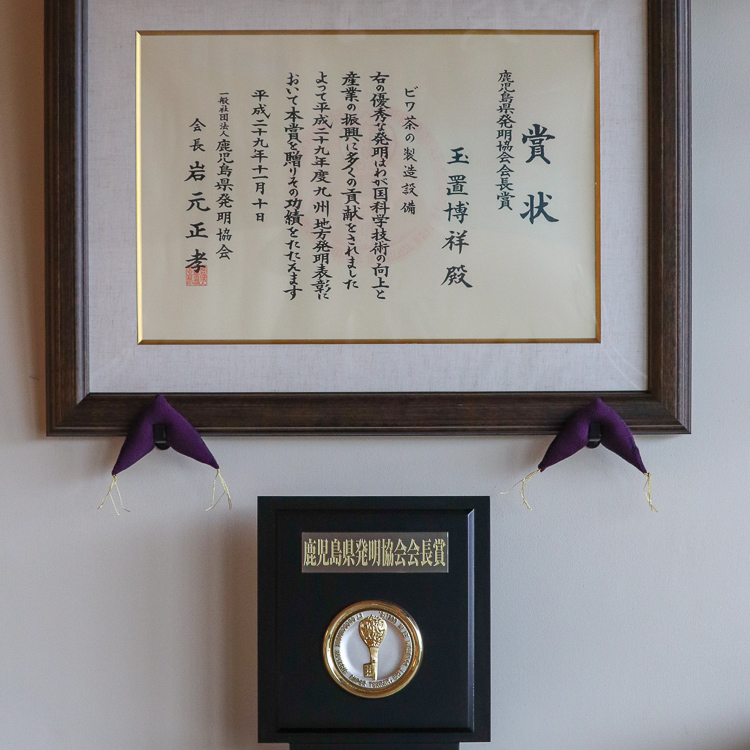 賞状
鹿児島県発明協会会長賞
玉置博祥殿
ビワ茶の製造設備
右の優秀な発明はわが国科学技術の向上と
産業の振興に多くの貢献をされました
よって平成二十九年度九州地方発明表彰に
おいて本賞を贈りその功績をたたえます
平成二十九年十一月十日
一般社団法人鹿児島県発明協会
会長岩元正孝
鹿児島県発明協会会長賞